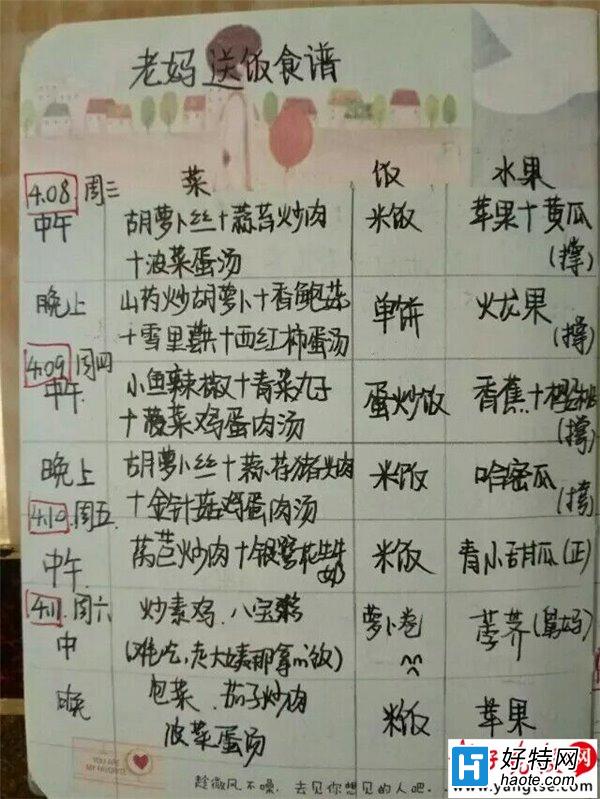 老妈送饭食谱
菜 饭 水果
4.08 周三
中午 胡萝卜丝+蒜苔炒肉 米饭 苹果+黄瓜
+波菜蛋汤 (撑)
晚上 山药炒胡萝卜+香鲍菇 单饼 火龙果
+雪里蕻+西红柿蛋汤 (撑)
4.09 周四
中午 小鱼辣椒+青菜丸子 蛋炒饭 香蕉+樱桃
+菠菜鸡蛋肉汤 (撑)
晚上 胡萝卜丝+蒜苔猪头肉 米饭 哈密瓜
+金针菇鸡蛋肉汤 (撑)
4.10 周五
中午 莴苣炒肉+银鹭花生牛奶 米饭 青小甜瓜(正)
4.11 周六
中 炒素鸡、八宝粥 萝卜卷 荸荠(舅妈)
(难吃,老大姨那拿的饭)
晚 包菜、茄子炒肉 米饭 苹果
波菜蛋汤
YOU ARE
MY FAVORITE
趁微风不噪,去见你想见的人吧。
www.yangtse.com
好特网
haote.com